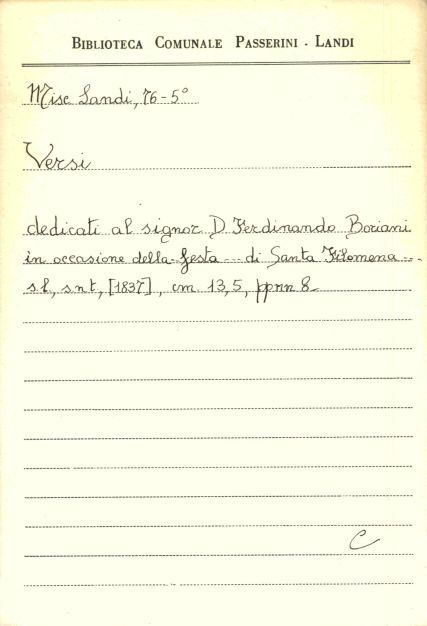 BIBLIOTECA COMUNALE PASSERINI - LANDI
Misc Landi, 76-5°
Versi
dedicati al signor D Ferdinando Boriani
in occasione della festa --- di Santa Filomena ---
s.l, s.n.t, [1837], cm 13,5, ppnn 8
C